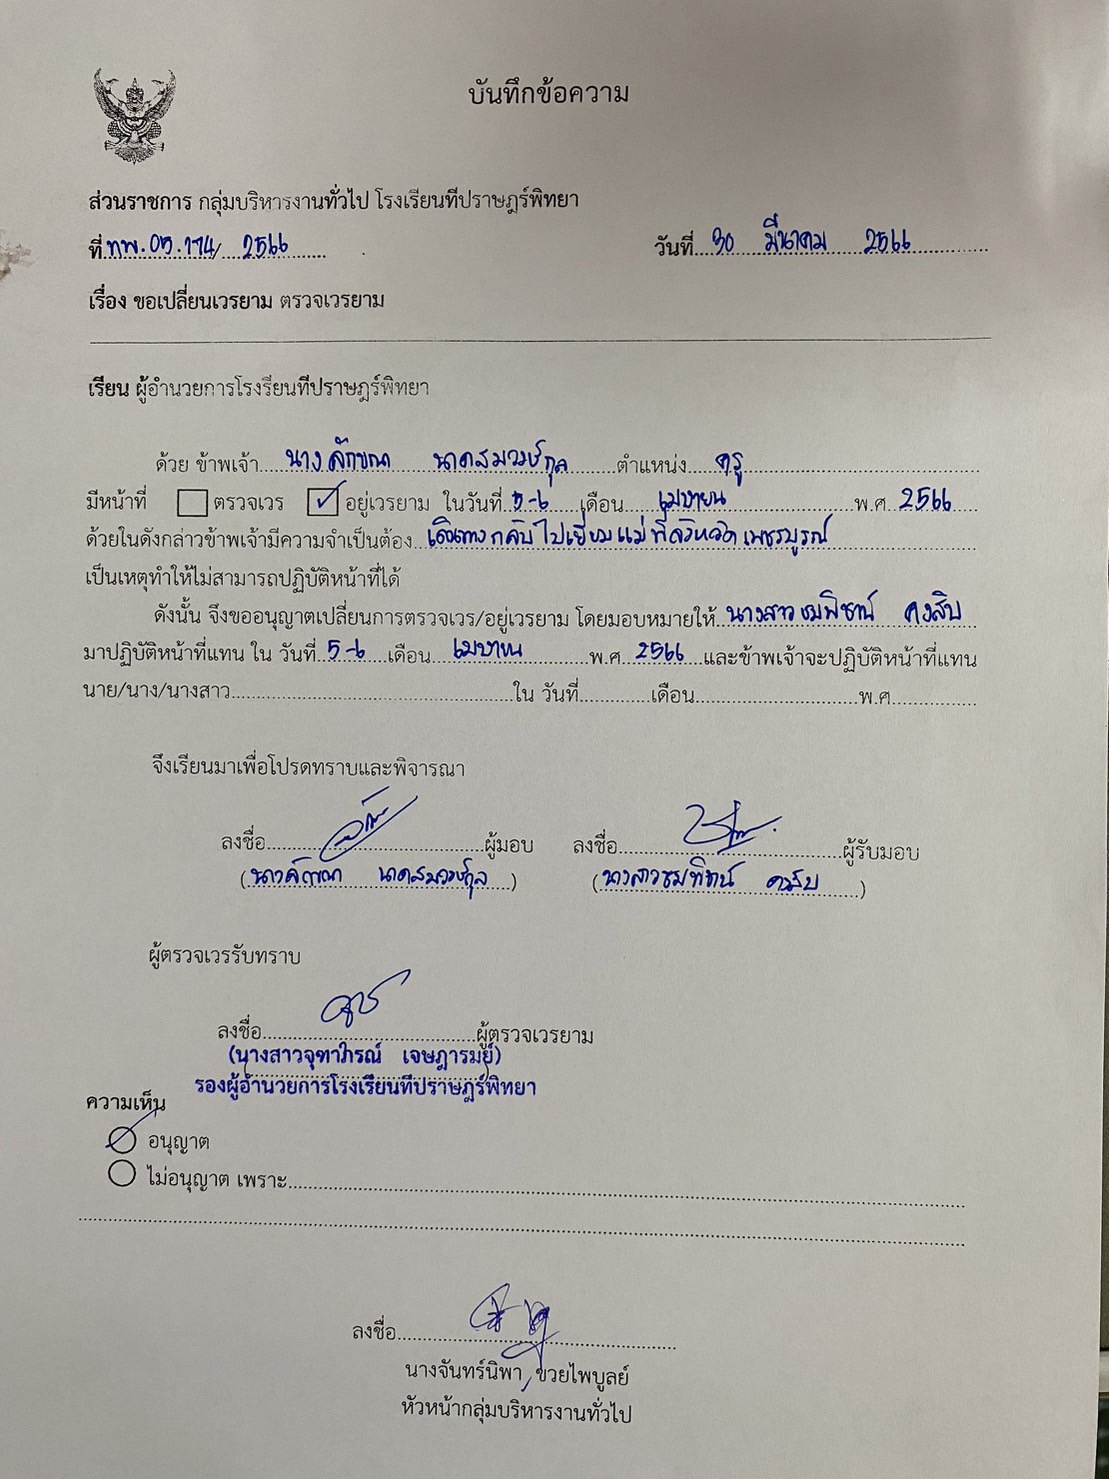 บันทึกข้อความ
ส่วนราชการ กลุ่มบริหารงานทั่วไป โรงเรียนทีปราษฎร์พิทยา
ที่ ทพ.05.174/ 2566 วันที่ 30 มีนาคม 2566
เรื่อง ขอเปลี่ยนเวรยาม ตรวจเวรยาม
เรียน ผู้อำนวยการโรงเรียนทีปราษฎร์พิทยา
ด้วย ข้าพเจ้า นางลักขณา นาคสมวงษ์กุล ตำแหน่ง ครู
มีหน้าที่ ตรวจเวร ✓ อยู่เวรยาม ในวันที่ 5-6 เดือน เมษายน พ.ศ 2566
ด้วยในดังกล่าวข้าพเจ้ามีความจำเป็นต้อง เดินทางกลับไปเยี่ยมแม่ ที่จังหวัดเพชรบูรณ์
เป็นเหตุทำให้ไม่สามารถปฏิบัติหน้าที่ได้
ดังนั้น จึงขออนุญาตเปลี่ยนการตรวจเวร/อยู่เวรยาม โดยมอบหมายให้ นางสาว
มาปฏิบัติหน้าที่แทน ใน วันที่ 5-6 เดือน เมษายน พ.ศ 2566 และข้าพเจ้าจะปฏิบัติหน้าที่แทน
นาย/นาง/นางสาว ใน วันที่ เดือน พ.ศ.
จึงเรียนมาเพื่อโปรดทราบและพิจารณา
ลงชื่อ ผู้มอบ ลงชื่อ ผู้รับมอบ
(นางลักขณา นาคสมวงษ์กุล) (นางสาว)
ผู้ตรวจเวรรับทราบ
ลงชื่อ ผู้ตรวจเวรยาม
(นางสาวจุฑาภรณ์ เจษฎารมย์)
รองผู้อำนวยการโรงเรียนทีปราษฎร์พิทยา
ความเห็น
อนุญาต
ไม่อนุญาต เพราะ
ลงชื่อ
นางจันทร์นิพา ขวยไพบูลย์
หัวหน้ากลุ่มบริหารงานทั่วไป